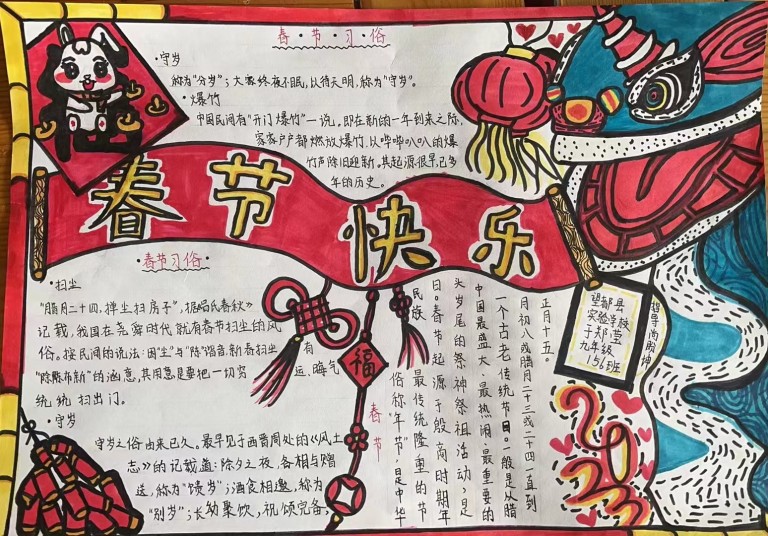 春·节·习·俗
·守岁
称为"分岁";大家终夜不眠,以待天明,称为"守岁"。
·爆竹
中国民间有"开门爆竹"一说。即在新的一年到来之际,
家家户户都燃放爆竹,以哔哔叭叭的爆
竹声除旧迎新,其起源很早,已多
年的历史。
春节快乐
·春节习俗·
·扫尘
"腊月二十四,掸尘扫房子",据《吕氏春秋》
记载,我国在尧舜时代就有春节扫尘的风
俗。按民间的说法:因"尘"与"陈"谐音,新春扫尘有
"除陈布新"的涵意,其用意是要把一切穷运、晦气
统统扫出门。
·守岁
守岁之俗由来已久。最早见于西晋周处的《风土
志》的记载道:除夕之夜,各相与赠
送,称为"馈岁";酒食相邀,称为
"别岁";长幼聚饮,祝颂完备,
福
春节
俗称"年节",是中华
民族最传统隆重的节
日。春节起源于殷商时期年
头岁尾的祭神祭祖活动,是
中国最盛大、最热闹、最重要的
一个古老传统节日。一般是从腊
月初八或腊月二十三或二十四一直到
正月十五。
望都县
实验学校
于郑莹
九年级
156班
2023